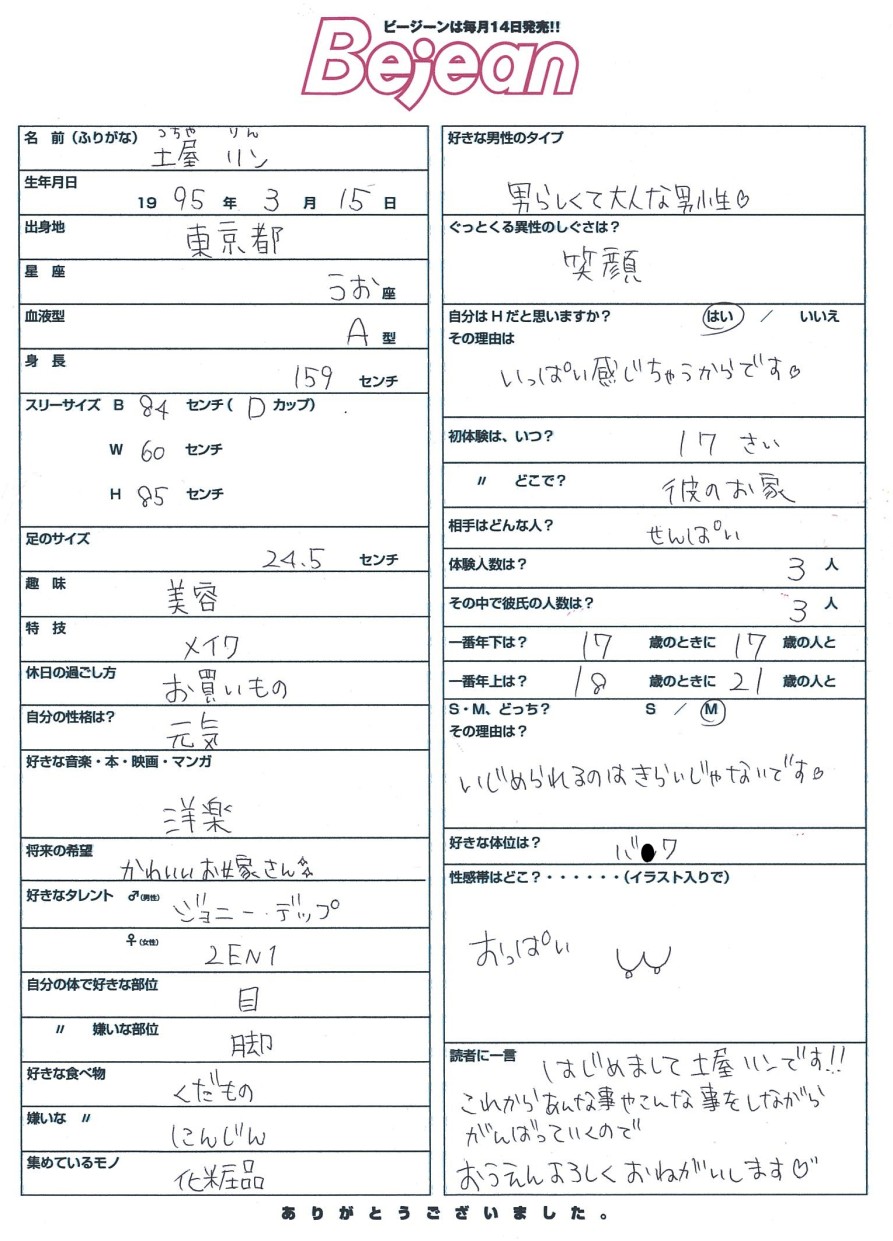 ビージーンは毎月14日発売!!
Bejean
名 前(ふりがな) つちや りん
土屋 リン
生年月日
1995年 3月 15日
出身地 東京都
星 座 うお座
血液型 A型
身 長 159 センチ
スリーサイズ B 84 センチ( D カップ)
W 60 センチ
H 85 センチ
足のサイズ 24.5 センチ
趣 味 美容
特 技 メイク
休日の過ごし方 お買いもの
自分の性格は? 元気
好きな音楽・本・映画・マンガ
洋楽
将来の希望 かわいいお嫁さん
好きなタレント ♂(男性) ジョニー・デップ
♀(女性) 2EN1
自分の体で好きな部位 目
〃 嫌いな部位 脚
好きな食べ物 くだもの
嫌いな 〃 にんじん
集めているモノ 化粧品
好きな男性のタイプ
男らしくて大人な男性♡
ぐっとくる異性のしぐさは?
笑顔
自分はHだと思いますか? はい / いいえ
その理由は
いっぱい感じちゃうからです♡
初体験は、いつ? 17 さい
〃 どこで? 彼のお家
相手はどんな人? せんぱい
体験人数は? 3 人
その中で彼氏の人数は? 3 人
一番年下は? 17 歳のときに 17 歳の人と
一番年上は? 18 歳のときに 21 歳の人と
S・M、どっち? S / M
その理由は?
いじめられるのはきらいじゃないです♡
好きな体位は? バ●ク
性感帯はどこ?・・・・・・(イラスト入りで)
おっぱい
読者に一言 はじめまして 土屋 リンです!!
これからあんな事やこんな事をしながら
がんばっていくので
おうえんよろしくおねがいします♡
ありがとうございました。